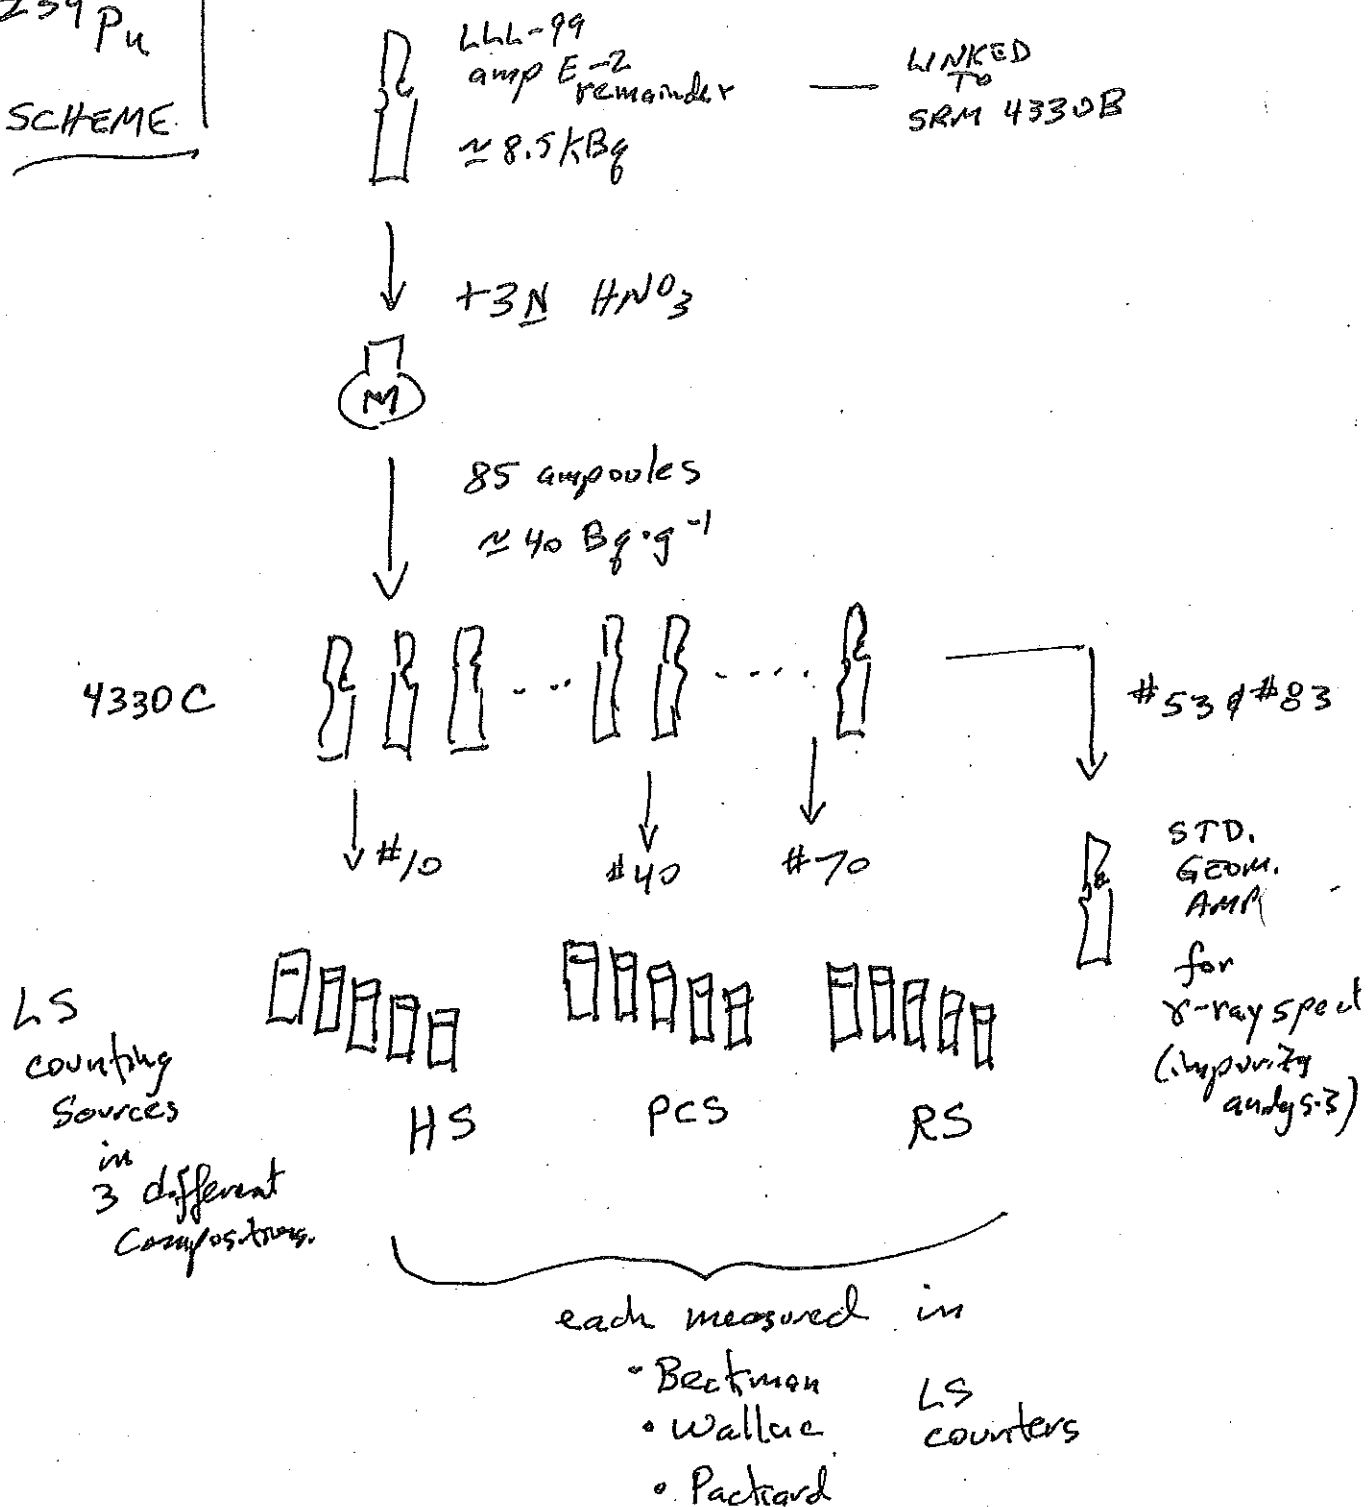 239Pu
SCHEME
LLL-99
amp E-2
remainder
≃ 8.5 kBq
LINKED
TO
SRM 4330B
+3N HNO3
M
85 ampoules
≃ 40 Bq·g-1
4330C
#53 & #83
#10
#40
#70
STD.
GEOM.
AMP
for
γ-ray spect
(impurity
analysis)
LS
counting
Sources
in
3 different
Compositions.
HS
PCS
RS
each measured in
• Beckman
• Wallac
• Packard
LS
counters